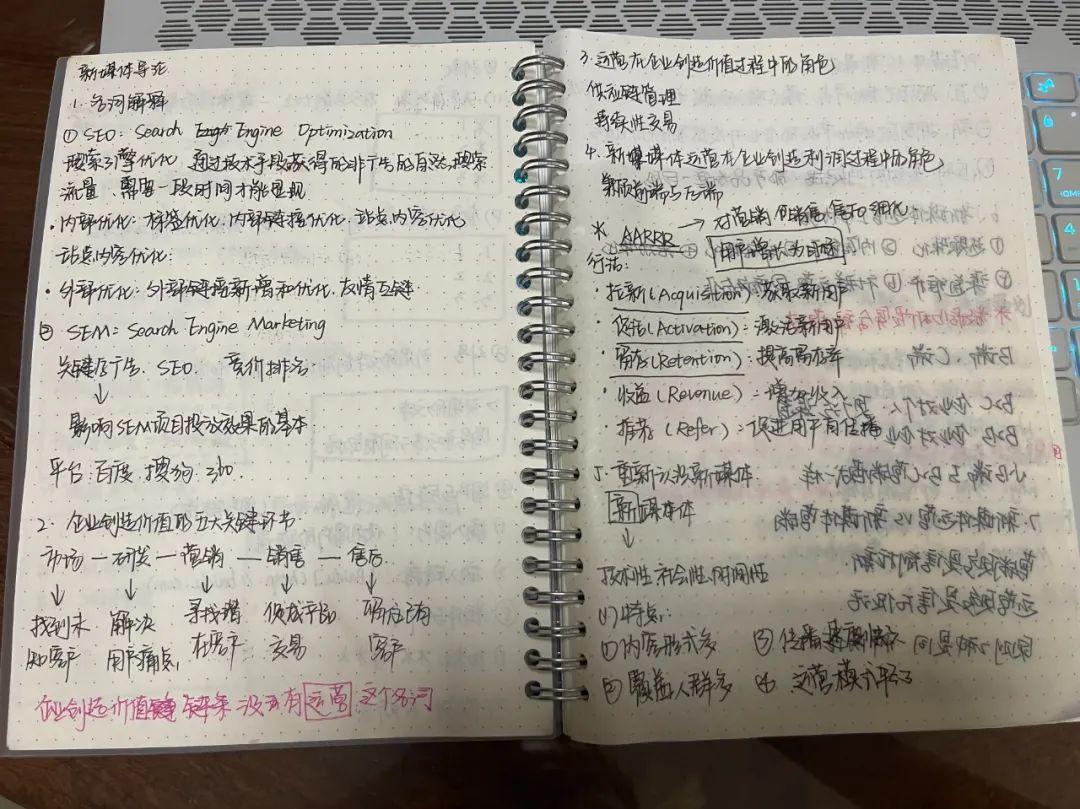 新媒体导论
1. 名词解释
① SEO: Search Engine Optimisation
搜索引擎优化 通过技术手段获得的非广告的自然搜索
流量 需要一段时间才能显现
·内部优化: 标签优化、内部链接优化、站点内容优化
站点内容优化:
·外部优化: 外部链接新增和优化、友情互链
② SEM: Search Engine Marketing
关键字广告、SEO、竞价排名
↓
影响SEM项目投放效果的基本
平台: 百度 搜狗 360
2. 企业创造价值的五大关键环节
市场 — 研发 — 营销 — 销售 — 售后
↓ ↓ ↓ ↓ ↓
找到未 解决 寻找潜 促成产品 响应已有
知客户 用户痛点 在客户 交易 客户
企业创造价值链条没有运营这个名词
3. 运营在企业创造价值过程中的角色
供应链管理
持续性交易
4. 新媒体运营在企业创造利润过程中的角色
前端与后端
* AARRR → 对营销、销售、售后细化
用户增长为目标
行话:
·拉新(Acquisition): 获取新用户
·促活(Activation): 激活新用户
·留存(Retention): 提高留存率
·收益(Revenue): 增加收入
·推荐(Refer): 促进用户自传播
5. 重新认识新媒体
新媒体
↓
技术性 社会性 时间性
(1)特点:
①内容形式多 ③传播速度快
②覆盖人群多 ④运营模式